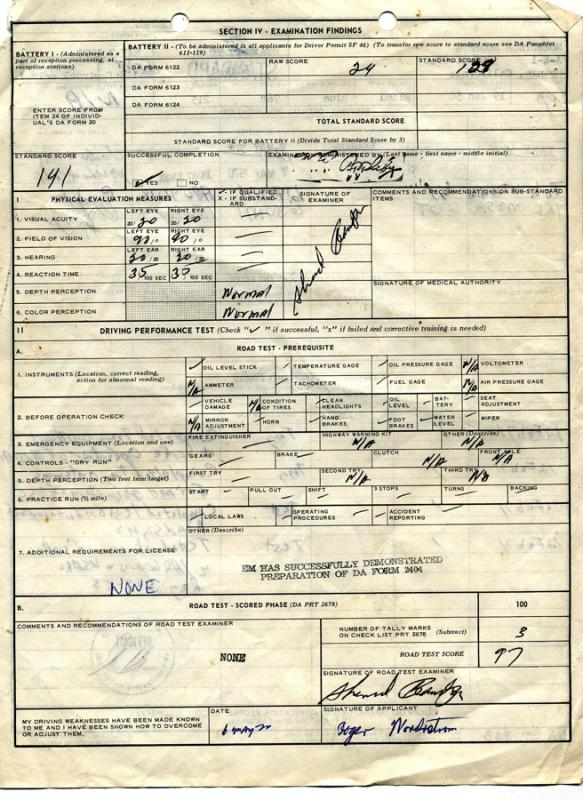 SECTION IV - EXAMINATION FINDINGS
BATTERY I - (Administered as part of reception processing, at reception stations)
BATTERY II - (To be administered to all applicants for Driver Permit SF 46) (To transfer raw score to standard score see DA Pamphlet 611-119)
DA FORM 6122
RAW SCORE
24
STANDARD SCORE
DA FORM 6123
ENTER SCORE FROM ITEM 24 OF INDIVIDUAL'S DA FORM 20
DA FORM 6124
TOTAL STANDARD SCORE
STANDARD SCORE FOR BATTERY II (Divide Total Standard Score by 3)
STANDARD SCORE
141
SUCCESSFUL COMPLETION
✓ YES NO
EXAMINATION ADMINISTERED BY (Last name - first name - middle initial)
I PHYSICAL EVALUATION MEASURES
✓ - IF QUALIFIED
X - IF SUBSTANDARD
SIGNATURE OF EXAMINER
COMMENTS AND RECOMMENDATIONS ON SUB-STANDARD ITEMS
1. VISUAL ACUITY
LEFT EYE 20/20
RIGHT EYE 20/20
2. FIELD OF VISION
LEFT EYE 90/0
RIGHT EYE 90/0
3. HEARING
LEFT EAR 20/20
RIGHT EAR 20/20
4. REACTION TIME
35/100 SEC
35/100 SEC
5. DEPTH PERCEPTION
Normal
SIGNATURE OF MEDICAL AUTHORITY
6. COLOR PERCEPTION
Normal
II DRIVING PERFORMANCE TEST (Check "✓" if successful, "x" if failed and corrective training is needed)
A. ROAD TEST - PREREQUISITE
1. INSTRUMENTS (Location, correct reading, action for abnormal reading)
✓ OIL LEVEL STICK ✓ TEMPERATURE GAGE ✓ OIL PRESSURE GAGE N/A VOLTMETER
N/A AMMETER ✓ TACHOMETER ✓ FUEL GAGE N/A AIR PRESSURE GAGE
2. BEFORE OPERATION CHECK
VEHICLE DAMAGE N/A CONDITION OF TIRES CLEAN HEADLIGHTS OIL LEVEL BATTERY SEAT ADJUSTMENT
N/A MIRROR ADJUSTMENT HORN HAND BRAKES FOOT BRAKES WATER LEVEL WIPER
3. EMERGENCY EQUIPMENT (Location and use)
FIRE EXTINGUISHER
HIGHWAY WARNING KIT N/A
OTHER (Describe) N/A
4. CONTROLS - "DRY RUN"
GEARS BRAKE CLUTCH N/A FRONT AXLE N/A
5. DEPTH PERCEPTION (Two feet from target)
FIRST TRY SECOND TRY N/A THIRD TRY N/A
6. PRACTICE RUN (½ mile)
START PULL OUT SHIFT 3 STOPS TURNS BACKING
7. ADDITIONAL REQUIREMENTS FOR LICENSE
✓ LOCAL LAWS ✓ OPERATING PROCEDURES ✓ ACCIDENT REPORTING
OTHER (Describe)
EM HAS SUCCESSFULLY DEMONSTRATED
PREPARATION OF DA FORM 2404
NONE
B. ROAD TEST - SCORED PHASE (DA PRT 2678)
100
COMMENTS AND RECOMMENDATIONS OF ROAD TEST EXAMINER
NONE
NUMBER OF TALLY MARKS ON CHECK LIST PRT 2678 (Subtract)
3
ROAD TEST SCORE
97
SIGNATURE OF ROAD TEST EXAMINER
MY DRIVING WEAKNESSES HAVE BEEN MADE KNOWN TO ME AND I HAVE BEEN SHOWN HOW TO OVERCOME OR ADJUST THEM.
DATE
SIGNATURE OF APPLICANT
Roger Nordstrom